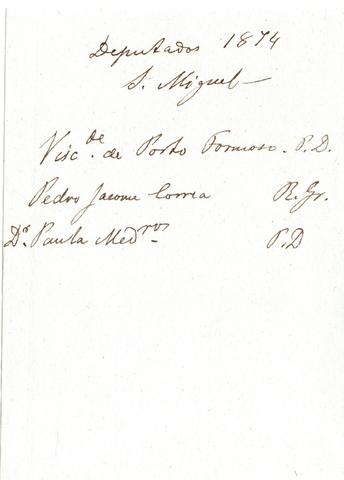 Deputados 1874
S. Miguel
Visc.de de Porto Formoso. P.D.
Pedro Jacome Correa R. Gr.
Dr. Paula Medros P.D